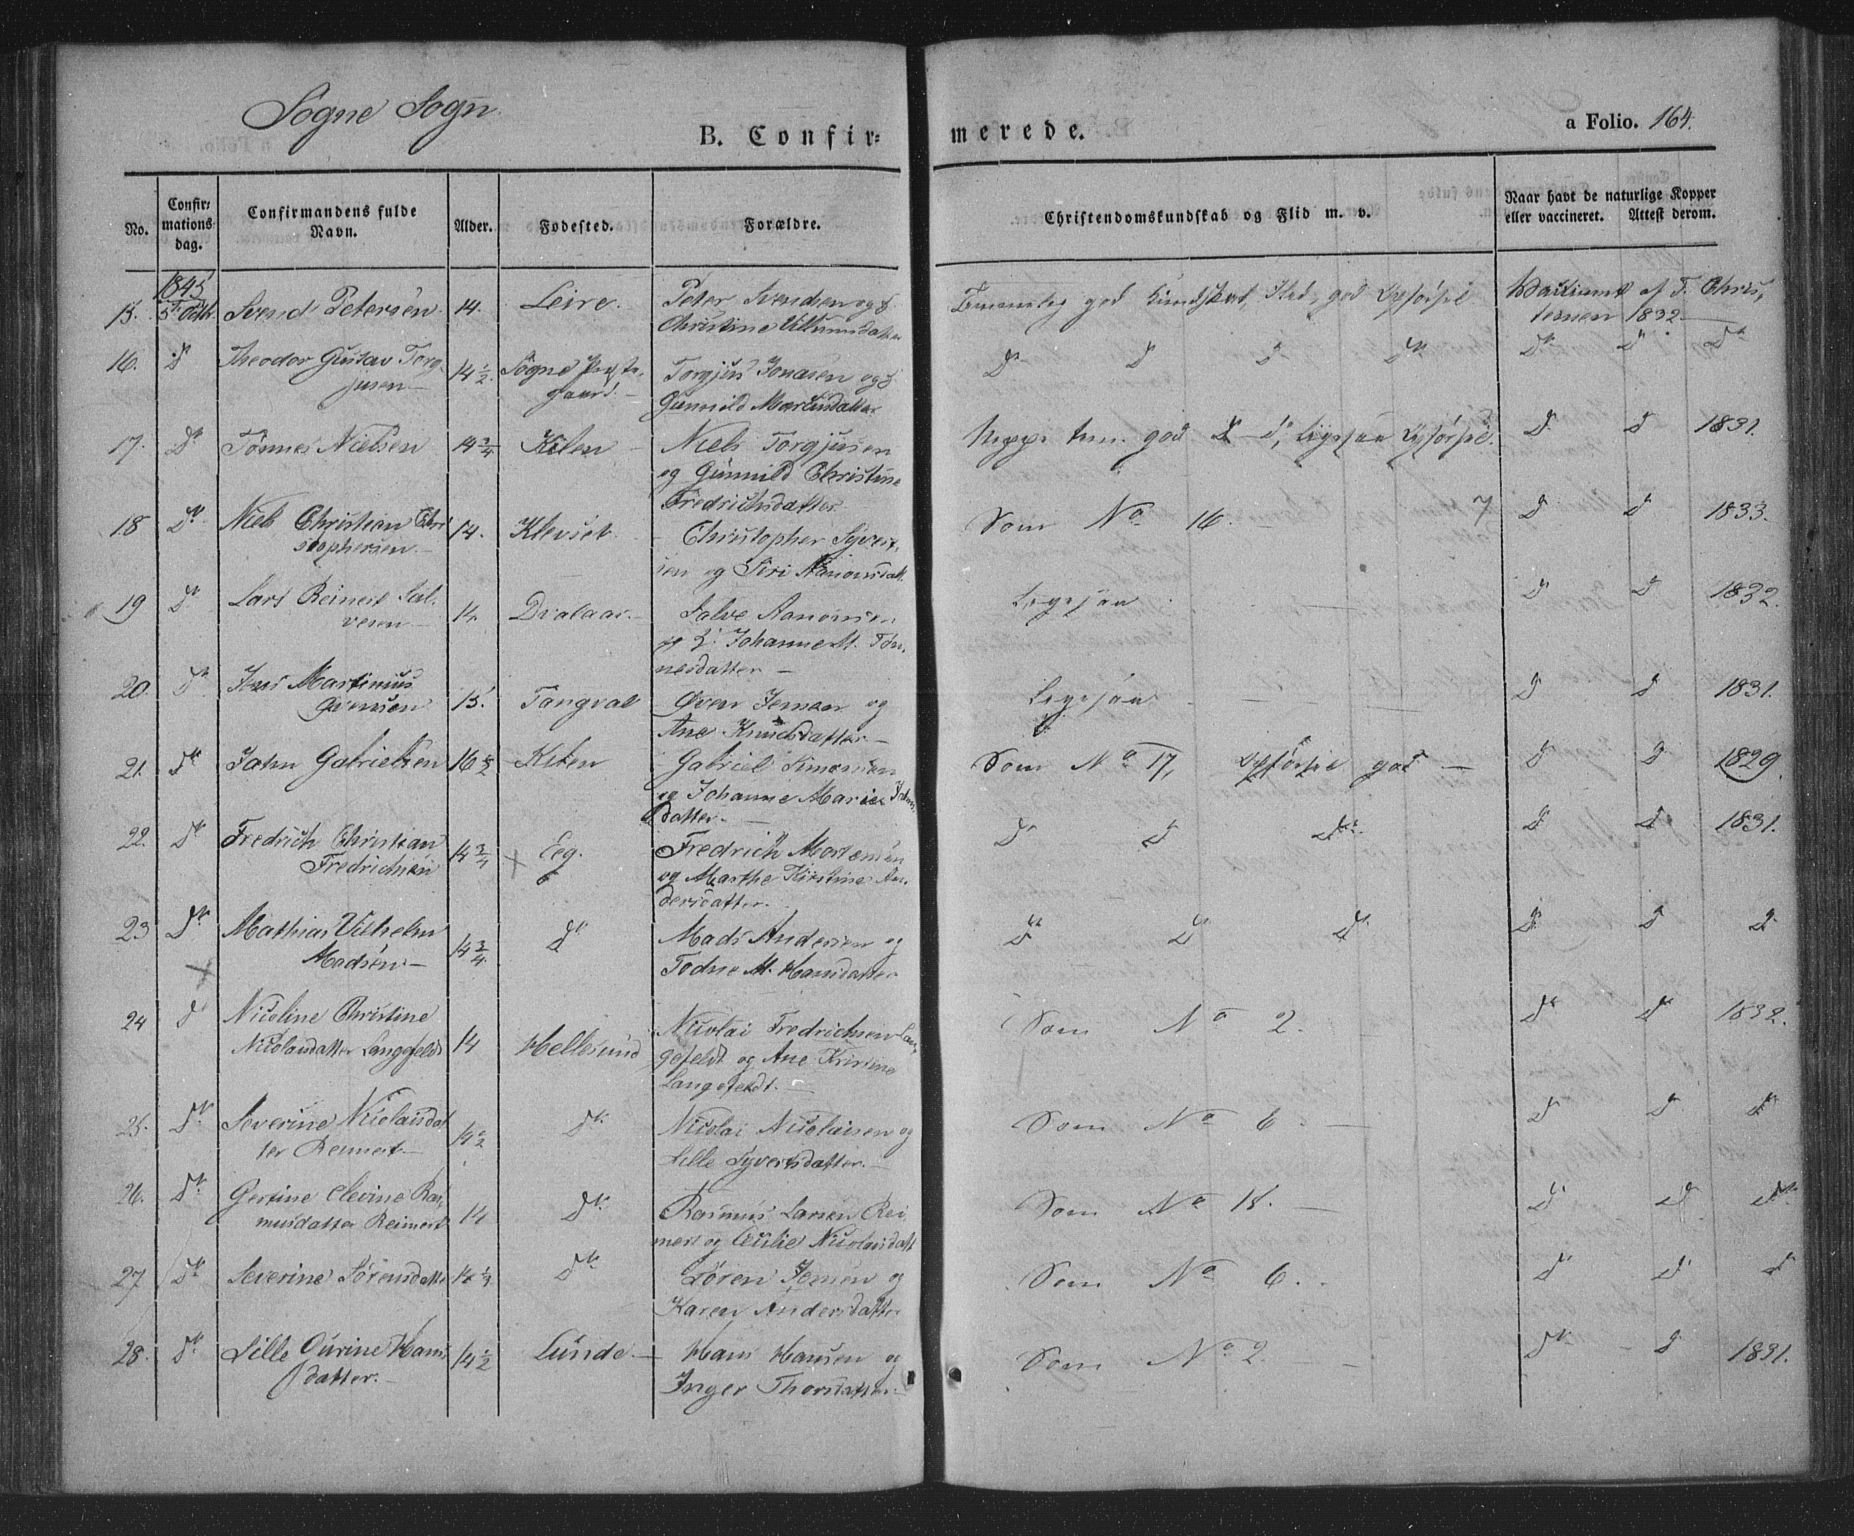 Sogne Sogn.
B. Confirmerede.
a Folio. 164.
No.
Confirmationsdag.
Confirmandens fulde Navn.
Alder.
Fødested.
Forældre.
Christendomskundskab og Flid m. v.
Naar havt de naturlige Kopper eller vaccineret. Attest derom.
1845
15. 5t Octb. Svend Petersen 14. Leire. Peter Svendsen og
Christine Villumsdatter
god Kundskab, Flid, god Opførsel
af T. Chris,
tensen 1832
16. Do Theodor Gustav Torg
jusen 14 1/2. Sögne Præste,
gaard. Torgjus Jonasen og
Gunnild Martinsdatter
Do Do Do Do Do Do Do
17. Do Tönnes Nielsen 14 3/4 Kilen Niels Torgjusen
og Gunnild Christine
Fredrichsdatter
god Do ligesaa Opførsel. Do Do 1831.
18 Do Niels Christian Chri
stophersen 14. Klevset Christopher Syvert,
sen og Siri Aanonsdatt.
Som No 16. Do Do 1833.
19 Do Lars Reinert Sal,
vesen 14 Salve Aanonsen
og Johanne M. Tön,
nesdatter
Ligesaa Do Do 1832.
20. Do Jens Martinius
Övensen 15. Tangval Öven Jensen og
Ane Knudsdatter
Ligesaa Do Do 1831.
21. Do John Gabrielsen 16 1/2 Kilen Gabriel Simonsen
og Johanne Marie
datter.
Som No 17, Opførsel god Do Do 1829.
22. Do Fredrich Christian
Fredrichsen 14 3/4 Eeg. Fredrich Mortensen
og Marthe Kirstine An,
dersdatter.
Do Do Do Do Do 1831.
23 Do Mathias Vilhelm
Madsen 14 3/4 Do Mads Andersen og
Todne M. Hansdatter
Do Do Do Do Do Do
24 Do Nicoline Christine
Nicolaisdatter Langefeldt 14 Hellesund Nicolai Fredrichsen Lan,
gefeldt og Ane Kirstine
Langefeldt.
Som No 2. Do Do 1832.
25. Do Severine Nicolaisdat
ter Reinert 14 1/2 Do Nicolai Nicolaisen og
Lille Syvertsdatter.
Som No 6. Do Do Do
26. Do Gertine Elevine Ras
musdatter Reimert 14 Do Rasmus Larsen Rei
mert og Cecilie Nicolaisdatt
Som No 18. Do Do Do
27 Do Severine Sörensdatter Do Sören Jensen og
Karen Andersdatter
Som No 6. Do Do Do
28. Do Lille Ourine Hans
datter. 14 1/2 Lunde. Hans Hansen og
Inger Thorsdatter
Som No 2. Do Do 1831.